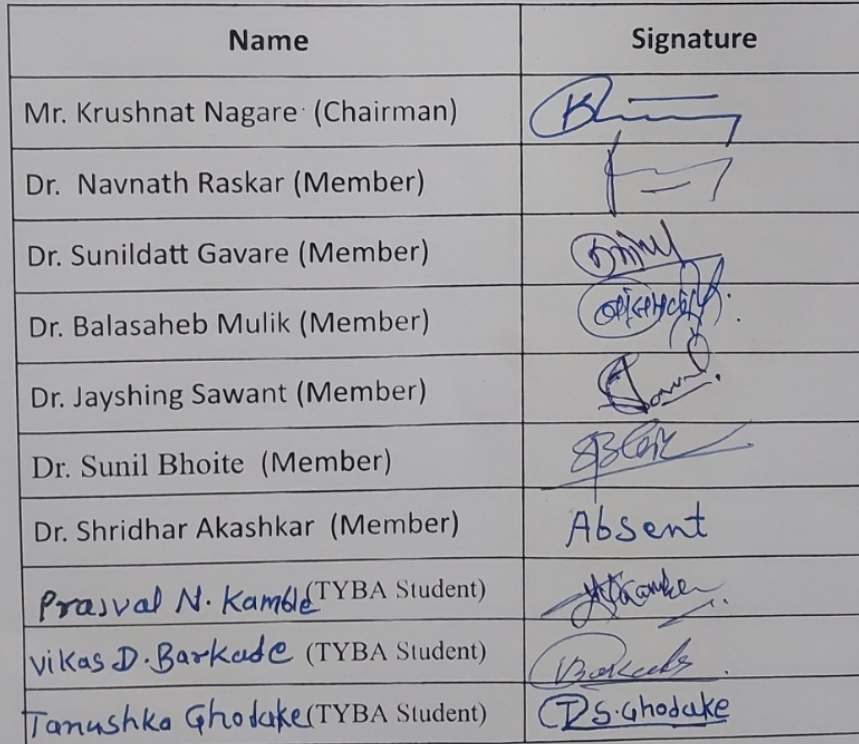 Name Signature
Mr. Krushnat Nagare (Chairman)
Dr. Navnath Raskar (Member)
Dr. Sunildatt Gavare (Member)
Dr. Balasaheb Mulik (Member)
Dr. Jayshing Sawant (Member)
Dr. Sunil Bhoite (Member)
Dr. Shridhar Akashkar (Member) Absent
Prasval N. Kamble (TYBA Student)
Vikas D. Barkade (TYBA Student)
Tanushka Ghodake (TYBA Student) S. Ghodake